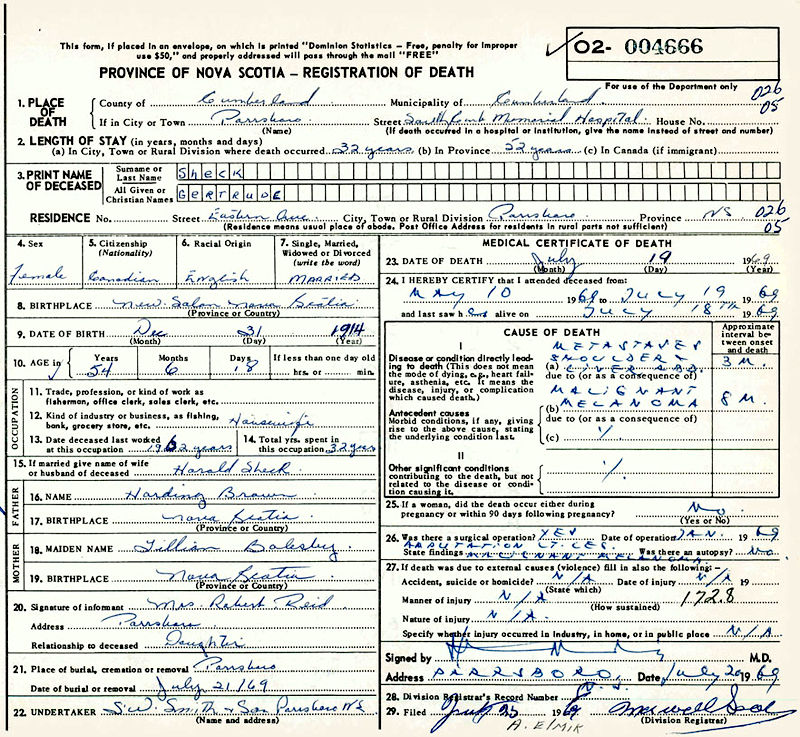 This form, if placed in an envelope, on which is printed "Dominion Statistics — Free, penalty for improper
use $50," and properly addressed will pass through the mail "FREE"
✓ O2- 004666
PROVINCE OF NOVA SCOTIA — REGISTRATION OF DEATH
For use of the Department only
026
05
1. PLACE OF DEATH
County of Cumberland Municipality of Cumberland
If in City or Town Parrsboro Street South Cumb Memorial Hospital House No.
(Name) (If death occurred in a hospital or institution, give the name instead of street and number)
2. LENGTH OF STAY (in years, months and days)
(a) In City, Town or Rural Division where death occurred 32 years (b) In Province 52 years (c) In Canada (if immigrant)
3. PRINT NAME OF DECEASED
Surname or Last Name SHECK
All Given or Christian Names GERTRUDE
RESIDENCE No. Street Eastern Ave. City, Town or Rural Division Parrsboro Province NS 026
(Residence means usual place of abode. Post Office Address for residents in rural parts not sufficient) 05
4. Sex
Female
5. Citizenship (Nationality)
Canadian
6. Racial Origin
English
7. Single, Married, Widowed or Divorced (write the word)
MARRIED
8. BIRTHPLACE New Salem Nova Scotia
(Province or Country)
9. DATE OF BIRTH Dec 31 1914
(Month) (Day) (Year)
10. AGE in Years Months Days If less than one day old
54 6 18 hrs. or min.
OCCUPATION
11. Trade, profession, or kind of work as
fisherman, office clerk, sales clerk, etc.
12. Kind of industry or business, as fishing,
bank, grocery store, etc. Housewife
13. Date deceased last worked at this occupation years
14. Total yrs. spent in this occupation 32 years
15. If married give name of wife
or husband of deceased Harold Sheck
FATHER
16. NAME Harding Brown
17. BIRTHPLACE Nova Scotia
(Province or Country)
MOTHER
18. MAIDEN NAME Lillian
19. BIRTHPLACE Nova Scotia
(Province or Country)
20. Signature of informant Mrs Robert Reid
Address Parrsboro
Relationship to deceased Daughter
21. Place of burial, cremation or removal Parrsboro
Date of burial or removal July 21/69
22. UNDERTAKER S.W. Smith & Son Parrsboro NS
(Name and address)
MEDICAL CERTIFICATE OF DEATH
23. DATE OF DEATH July 19 1969
(Month) (Day) (Year)
24. I HEREBY CERTIFY that I attended deceased from:
MAY 10 1969 to JULY 19 1969
and last saw her alive on JULY 18TH 1969
CAUSE OF DEATH
Approximate interval between onset and death
I
Disease or condition directly leading to death (This does not mean the mode of dying, e.g., heart failure, asthenia, etc. It means the disease, injury, or complication which caused death.)
METASTASES
SHOULDER
(a) LIVER 3 M.
due to (or as a consequence of)
MALIGNANT
(b) MELANOMA 8 M.
Antecedent causes
Morbid conditions, if any, giving rise to the above cause, stating the underlying condition last.
due to (or as a consequence of)
(c)
II
Other significant conditions
contributing to the death, but not related to the disease or condition causing it.
25. If a woman, did the death occur either during
pregnancy or within 90 days following pregnancy? No
(Yes or No)
26. Was there a surgical operation? YES Date of operation JAN. 1969
State findings AMPUTATION MALIGNANT MELANOMA Was there an autopsy? No.
27. If death was due to external causes (violence) fill in also the following:—
Accident, suicide or homicide? N/A Date of injury N/A 19
(State which)
Manner of injury N/A 172.8
(How sustained)
Nature of injury N/A
Specify whether injury occurred in industry, in home, or in public place N/A
Signed by M.D.
Address PARRSBORO, N.S. Date July 20 1969
28. Division Registrar's Record Number
29. Filed July 25 1969
(Division Registrar)
A. ELMIK